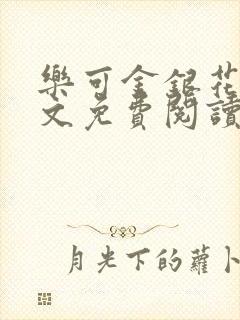 樂可金銀花
文免費閱讀
月光下的蘿卜